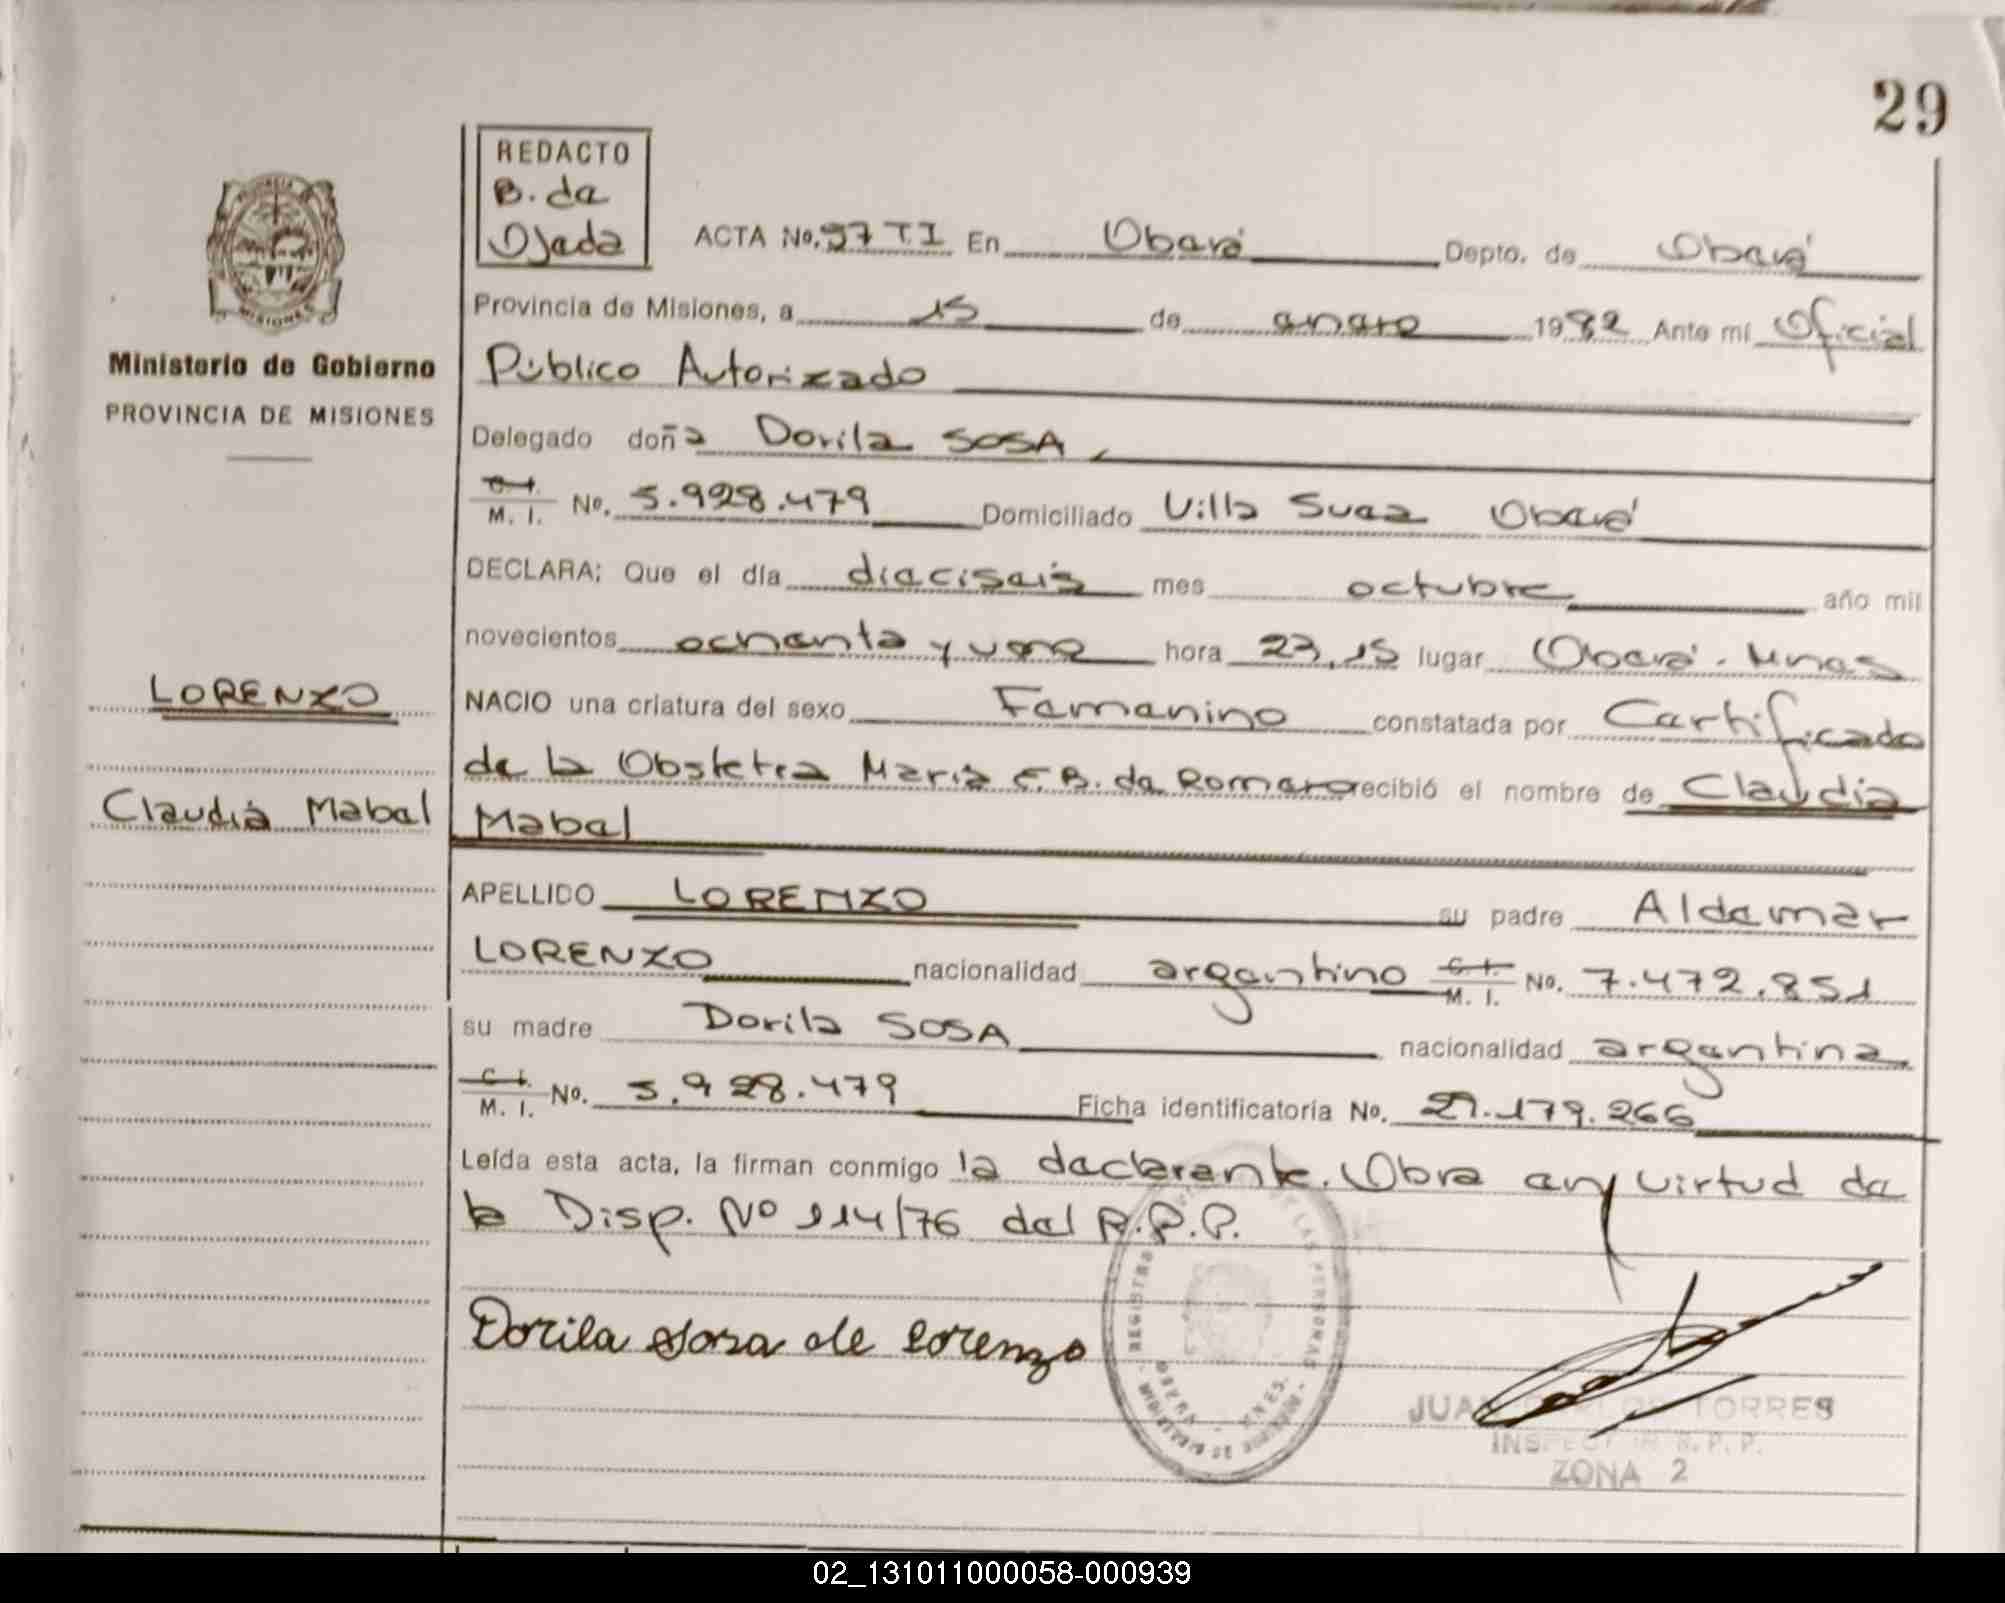 29
REDACTO
B. de
Ojeda
ACTA No. 97 T.I En Oberá Depto. de Oberá
Provincia de Misiones, a 15 de enero 1982 Ante mí Oficial
Público Autorizado
Ministerio de Gobierno
PROVINCIA DE MISIONES
Delegado doña Dorila SOSA
C. I.
M. I. No. 5.928.479 Domiciliado Villa Suaa Oberá
DECLARA: Que el día dieciseis mes octubre año mil
novecientos ochenta y uno hora 23,15 lugar Oberá. Mnes
LORENZO
NACIO una criatura del sexo Femenino constatada por Certificado
de la Obstetra María E.B. de Romero recibió el nombre de Claudia
Claudia Mabel
Mabel
APELLIDO LORENZO su padre Aldemar
LORENZO nacionalidad argentino C. I.
M. I. No. 7.472.851
su madre Dorila SOSA nacionalidad argentina
C. I.
M. I. No. 5.928.479 Ficha identificatoria No. 29.179.266
Leída esta acta, la firman conmigo la declarante. Obra en virtud de
la Disp. Nº 114/76 del R.P.P.
Dorila Sosa de Lorenzo
REGISTRO PROVINCIAL DE LAS PERSONAS
OBERÁ MNES.
JUAN CARLOS TORRES
INSPECTOR R. P. P.
ZONA 2
02_131011000058-000939